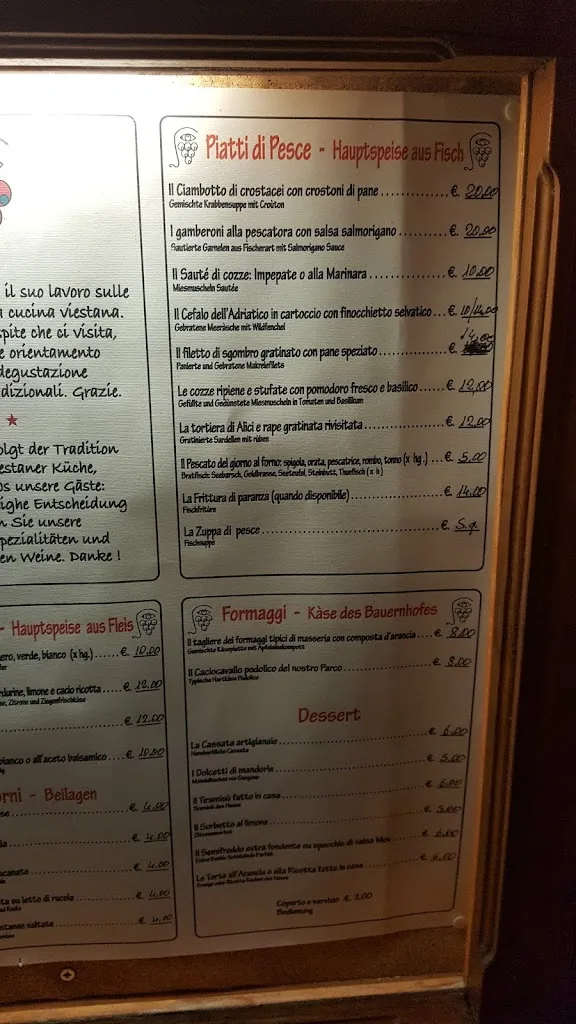 il suo lavoro sulle
cucina viestana.
spite che ci visita,
e orientamento
degustazione
dizionali. Grazie.
olgt der Tradition
estaner Küche,
os unsere Gäste:
ighe Entscheidung
n Sie unsere
pezialitäten und
en Weine. Danke !
Piatti di Pesce - Hauptspeise aus Fisch
Il Ciambotto di crostacei con crostoni di pane ............ €. 20,00
Gemischte Krabbensuppe mit Croûton
I gamberoni alla pescatora con salsa salmorigano ......... €. 20,00
Sautierte Garnelen aus Fischerart mit Salmorigano Sauce
Il Sauté di cozze: Impepate o alla Marinara .............. €. 10,00
Miesmuscheln Sautée
Il Cefalo dell'Adriatico in cartoccio con finocchietto selvatico ... €. 10/14,00
Gebratene Meeräsche mit Wildfenchel
Il filetto di sgombro gratinato con pane speziato ............ €. 14,00
Panierte und Gebratene Makrelefilets
Le cozze ripiene e stufate con pomodoro fresco e basilico ...... €. 12,00
Gefüllte und Gedünstete Miesmuscheln in Tomaten und Basilikum
La tortiera di Alici e rape gratinata rivisitata .............. €. 12,00
Gratinierte Sardellen mit rüben
Il Pescato del giorno al forno: spigola, orata, pescatrice, rombo, tonno (x hg.) ... €. 5,00
Bratfisch: Seebarsch, Goldbrasse, Seeteufel, Steinbutt, Thunfisch ( x h )
La Frittura di paranza (quando disponibile) ................ €. 14,00
Fischfritüre
La Zuppa di pesce ........................ €. S.q.
Fischsuppe
- Hauptspeise aus Fleis
ero, verde, bianco (x hg.) ...... €. 10,00
limone e cacio ricotta ...... €. 12,00
se, Zitrone und Ziegenfrischkäse
€. 12,00
bianco o all'aceto balsamico ..... €. 10,00
orni - Beilagen
€ 4,00
€ 4,00
€ 4,00
ta su letto di rucola ...... € 4,00
saltate ...... € 4,00
Formaggi - Käse des Bauernhofes
Il tagliere dei formaggi tipici di masseria con composta d'arancia ... € 8,00
Gemischte Käseplatte mit Apfelsinenkompott
Il Caciocavallo podolico del nostro Parco .............. € 8,00
Typische Hartkäse Podolico
Dessert
La Cassata artigianale ................ € 6,00
Handwerkliche Cassata
I Dolcetti di mandorle ................ € 5,00
Il Tiramisù fatto in casa ................ € 6,00
Tiramisù des Hauses
Il Sorbetto al limone ................ € 5,00
Zitronensorbet
Il Semifreddo extra fondente su specchio di salsa Mou ...... € 6,00
La Torta all'Arancia o alla Ricotta fatta in casa ......... €
Coperto e servizio € 2,00
Bedienung